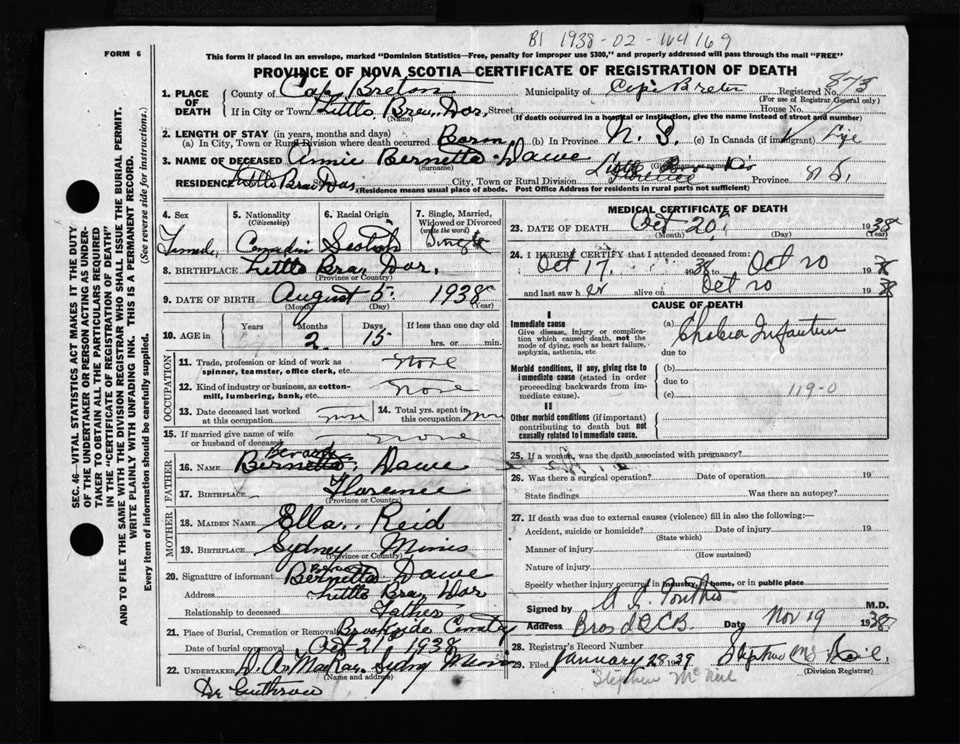 B1 1938-02-164169
FORM 6
This form if placed in an envelope, marked "Dominion Statistics—Free, penalty for improper use $300," and properly addressed will pass through the mail "FREE"
PROVINCE OF NOVA SCOTIA—CERTIFICATE OF REGISTRATION OF DEATH
873
1. PLACE OF DEATH County of Cape Breton Municipality of Cape Breton Registered No.
(For use of Registrar General only)
If in City or Town Little Bras Dor, Street House No.
(Name) (If death occurred in a hospital or institution, give the name instead of street and number)
2. LENGTH OF STAY (in years, months and days)
(a) In City, Town or Rural Division where death occurred Born (b) In Province N. S. (c) In Canada (if immigrant) Life
3. NAME OF DECEASED Annie Bernetta Dawe
(Surname)
RESIDENCE Little Bras Dor, City, Town or Rural Division Florence Province N S.
(Residence means usual place of abode. Post Office Address for residents in rural parts not sufficient)
4. Sex 5. Nationality (Citizenship) 6. Racial Origin 7. Single, Married, Widowed or Divorced (write the word)
Female Canadian Scotish Single
8. BIRTHPLACE Little Bras Dor,
(Province or Country)
9. DATE OF BIRTH August 5 1938
(Month) (Day) (Year)
10. AGE in Years Months 2 Days 15 If less than one day old hrs. or min.
OCCUPATION
11. Trade, profession or kind of work as spinner, teamster, office clerk, etc. none
12. Kind of industry or business, as cotton-mill, lumbering, bank, etc. none
13. Date deceased last worked at this occupation none 14. Total yrs. spent in this occupation none
15. If married give name of wife or husband of deceased none
FATHER
16. NAME Bernetta Dawe
17. BIRTHPLACE Florence
(Province or Country)
MOTHER
18. MAIDEN NAME Ella Reid
19. BIRTHPLACE Sydney Mines
(Province or Country)
20. Signature of informant Bernetta Dawe
Address Little Bras Dor
Relationship to deceased Father
21. Place of Burial, Cremation or Removal Brookside Cemetery
Date of burial or removal Oct 21 1938
22. UNDERTAKER D. A. MacKay Sydney Mines
(Name and address)
MEDICAL CERTIFICATE OF DEATH
23. DATE OF DEATH Oct 20 1938
(Month) (Day) (Year)
24. I HEREBY CERTIFY that I attended deceased from
Oct 17 1938 to Oct 20 1938
and last saw her alive on Oct 20 1938
CAUSE OF DEATH
I
Immediate cause (a) Cholera Infantum
Give disease, injury or complication which caused death, not the mode of dying, such as heart failure, asphyxia, asthenia, etc due to
Morbid conditions, if any, giving rise to immediate cause (stated in order proceeding backwards from immediate cause). (b)
due to
(c) 119-0
II
Other morbid conditions (if important) contributing to death but not causally related to immediate cause.
25. If a woman, was the death associated with pregnancy?
26. Was there a surgical operation? Date of operation 19
State findings Was there an autopsy?
27. If death was due to external causes (violence) fill in also the following:—
Accident, suicide or homicide? Date of injury 19
(State which)
Manner of injury
(How sustained)
Nature of injury
Specify whether injury occurred in industry, in home, or in public place
Signed by M.D.
Address Bras d'Or C.B. Date Nov 19 1938
28. Registrar's Record Number
29. Filed January 28 1939 Stephen McNeil
(Division Registrar)
Stephen McNeil
SEC. 46—VITAL STATISTICS ACT MAKES IT THE DUTY
OF THE UNDERTAKER OR PERSON ACTING AS UNDER-
TAKER TO OBTAIN ALL THE PARTICULARS REQUIRED
IN THE "CERTIFICATE OF REGISTRATION OF DEATH"
AND TO FILE THE SAME WITH THE DIVISION REGISTRAR WHO SHALL ISSUE THE BURIAL PERMIT.
WRITE PLAINLY WITH UNFADING INK. THIS IS A PERMANENT RECORD.
Every item of information should be carefully supplied. (See reverse side for instructions.)